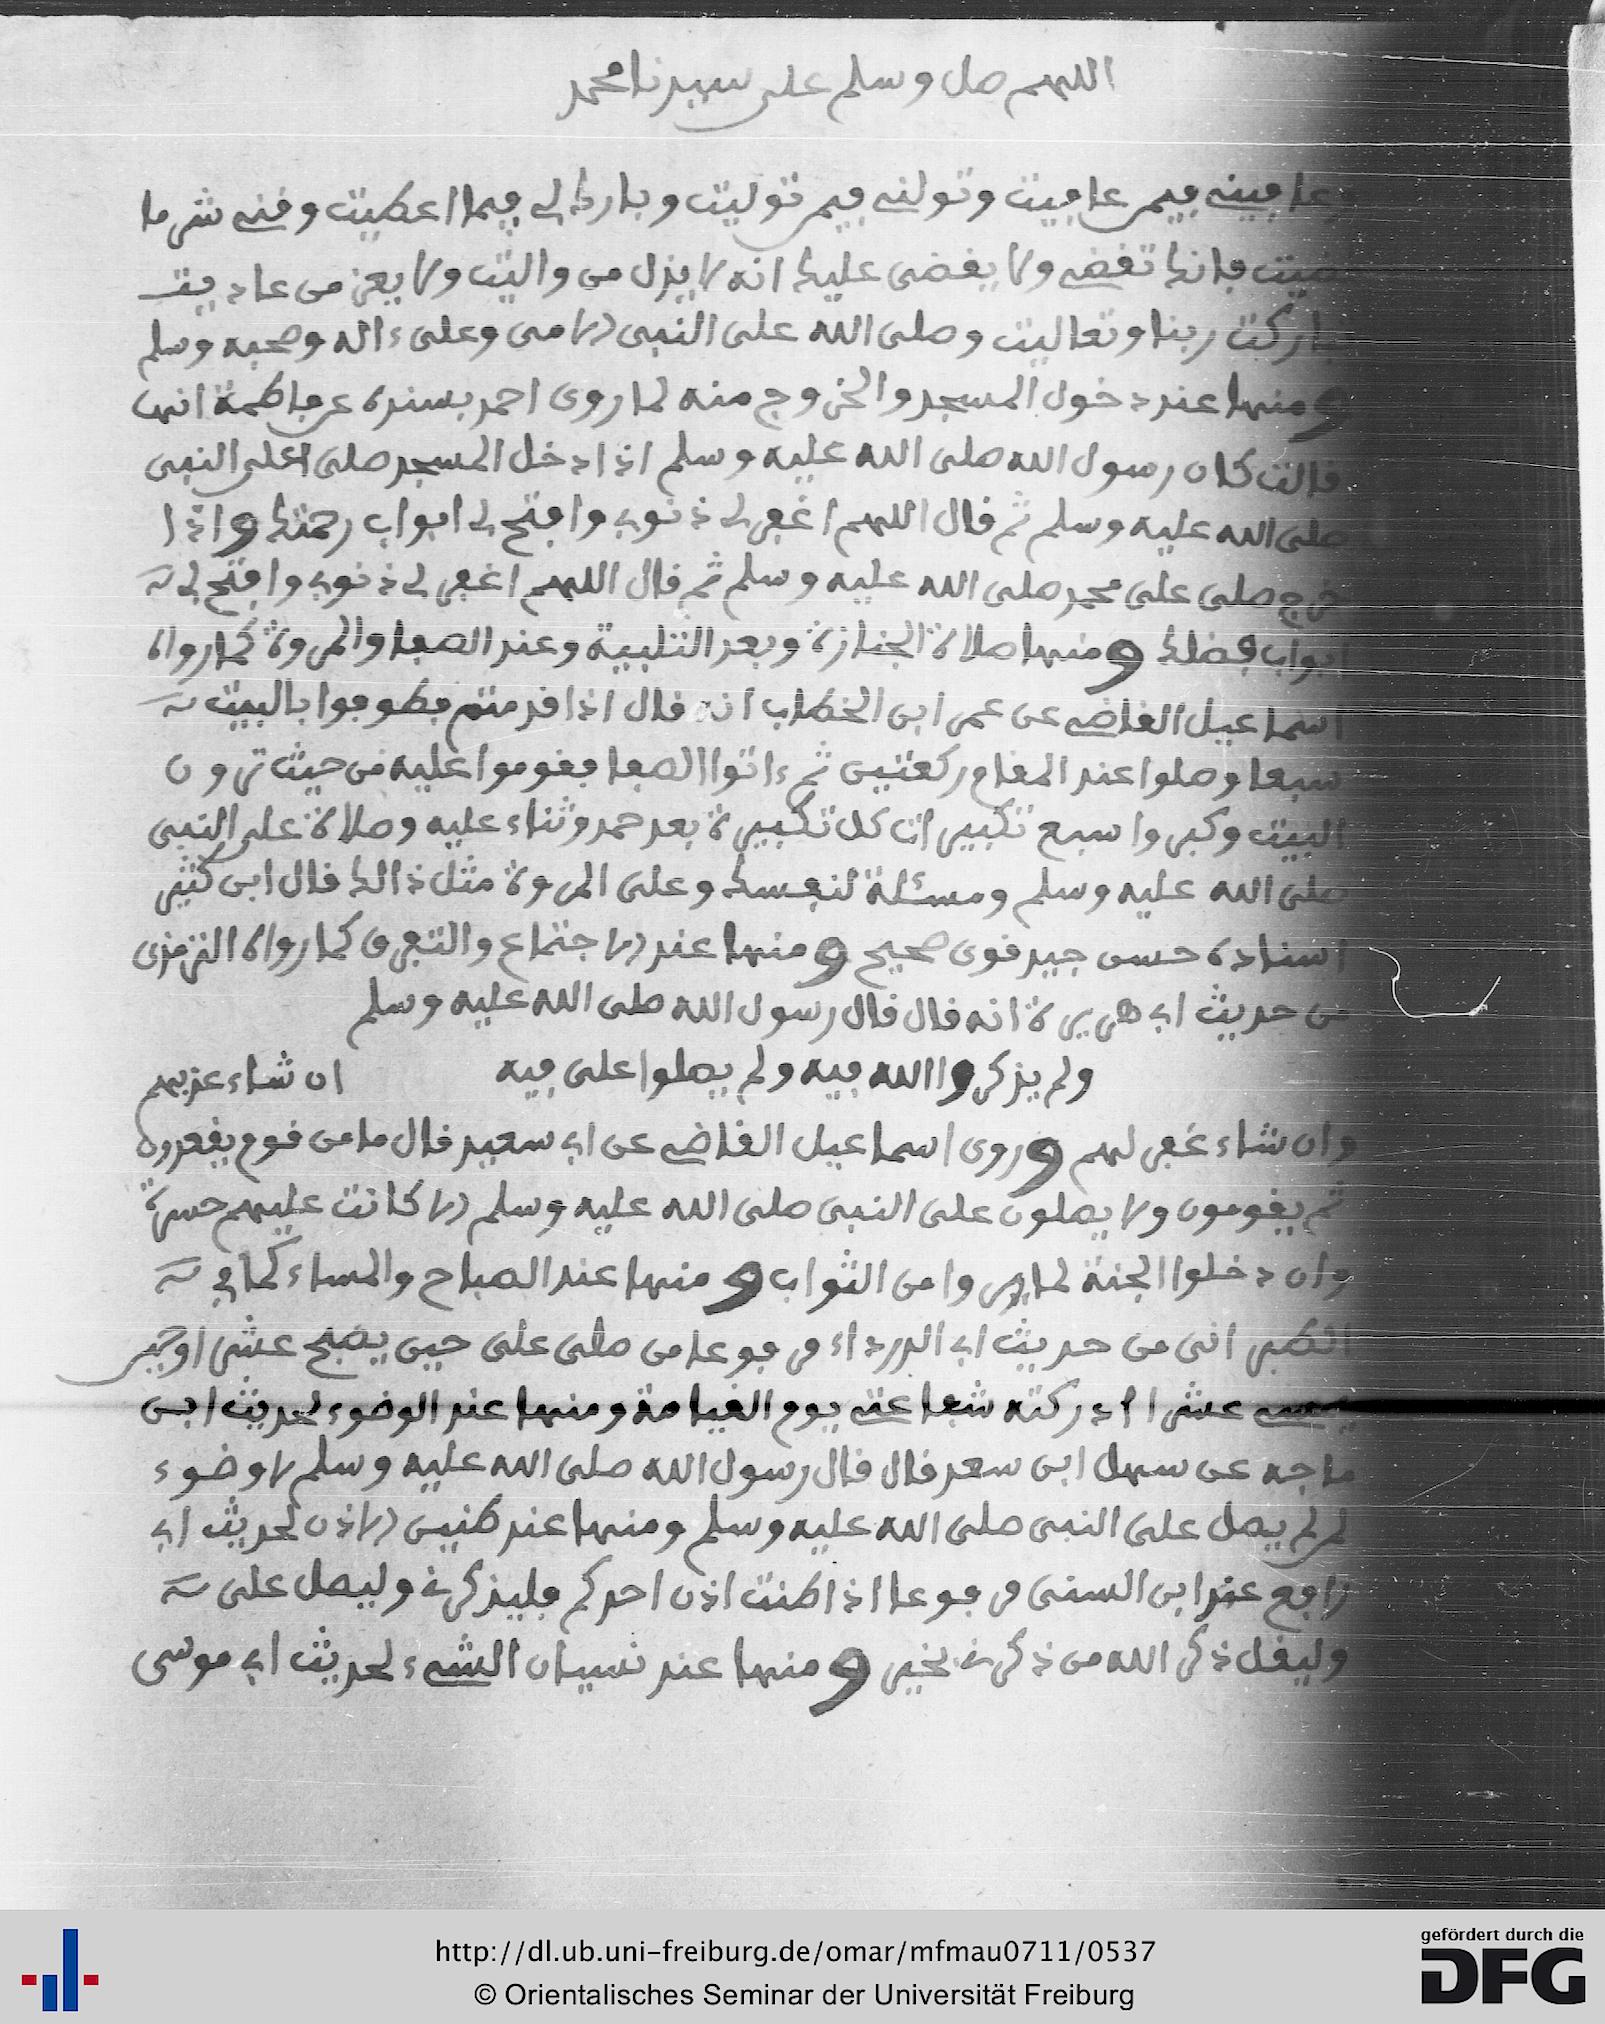 اللهم صل وسلم على سيدنا محمد
وعافينى فيمن عافيت وتولنى فيمن توليت وبارك لى فيما اعطيت وقنى شر ما
قضيت فانك تقضى ولا يقضى عليك انه لا يذل من واليت ولا يعز من عاديت
تباركت ربنا وتعاليت وصلى الله على النبى الامى وعلى ءاله وصحبه وسلم
ومنها عند دخول المسجد والخروج منه لما روى احمد بسنده عن فاطمة انها
قالت كان رسول الله صلى الله عليه وسلم اذا دخل المسجد صلى على النبى
صلى الله عليه وسلم ثم قال اللهم اغفر لى ذنوبى وافتح لى ابواب رحمتك واذا
خرج صلى على محمد صلى الله عليه وسلم ثم قال اللهم اغفر لى ذنوبى وافتح لى
ابواب فضلك ومنها صلاة الجنازة وبعد التلبية وعند الصفا والمروة كما رواه
اسماعيل القاضى عن عمر ابن الخطاب انه قال اذا قدمتم فطوفوا بالبيت
سبعا وصلوا عند المقام ركعتين ثم ءاتوا الصفا فقوموا عليه من حيث ترون
البيت وكبروا سبع تكبيرات كل تكبيرة بعد حمد وثناء عليه وصلاة على النبى
صلى الله عليه وسلم ومسئلة لنفسك وعلى المروة مثل ذالك قال ابن كثير
اسناده حسن جيد قوى صحيح ومنها عند الاجتماع والتفرق كما رواه الترمذى
من حديث ابى هريرة انه قال قال رسول الله صلى الله عليه وسلم
ولم يذكروا الله فيه ولم يصلوا على فيه ان شاء عذبهم
وان شاء غفر لهم وروى اسماعيل القاضى عن ابى سعيد قال ما من قوم يقعدون
ثم يقومون ولا يصلون على النبى صلى الله عليه وسلم الا كانت عليهم حسرة
وان دخلوا الجنة لما يروا من الثواب ومنها عند الصباح والمساء كما فى
الطبرانى من حديث ابى الدرداء مرفوعا من صلى على حين يصبح عشرا وحين
يمسى عشرا ادركته شفاعتى يوم القيامة ومنها عند الوضوء لحديث ابن
ماجه عن سهل ابن سعد قال قال رسول الله صلى الله عليه وسلم لا وضوء
لمن لم يصل على النبى صلى الله عليه وسلم ومنها عند طنين الاذن لحديث ابى
رافع عند ابن السنى مرفوعا اذا طنت اذن احدكم فليذكرنى وليصل على
وليقل ذكر الله من ذكرنى بخير ومنها عند نسيان الشىء لحديث ابى موسى
http://dl.ub.uni-freiburg.de/omar/mfmau0711/0537
© Orientalisches Seminar der Universität Freiburg
gefördert durch die
DFG